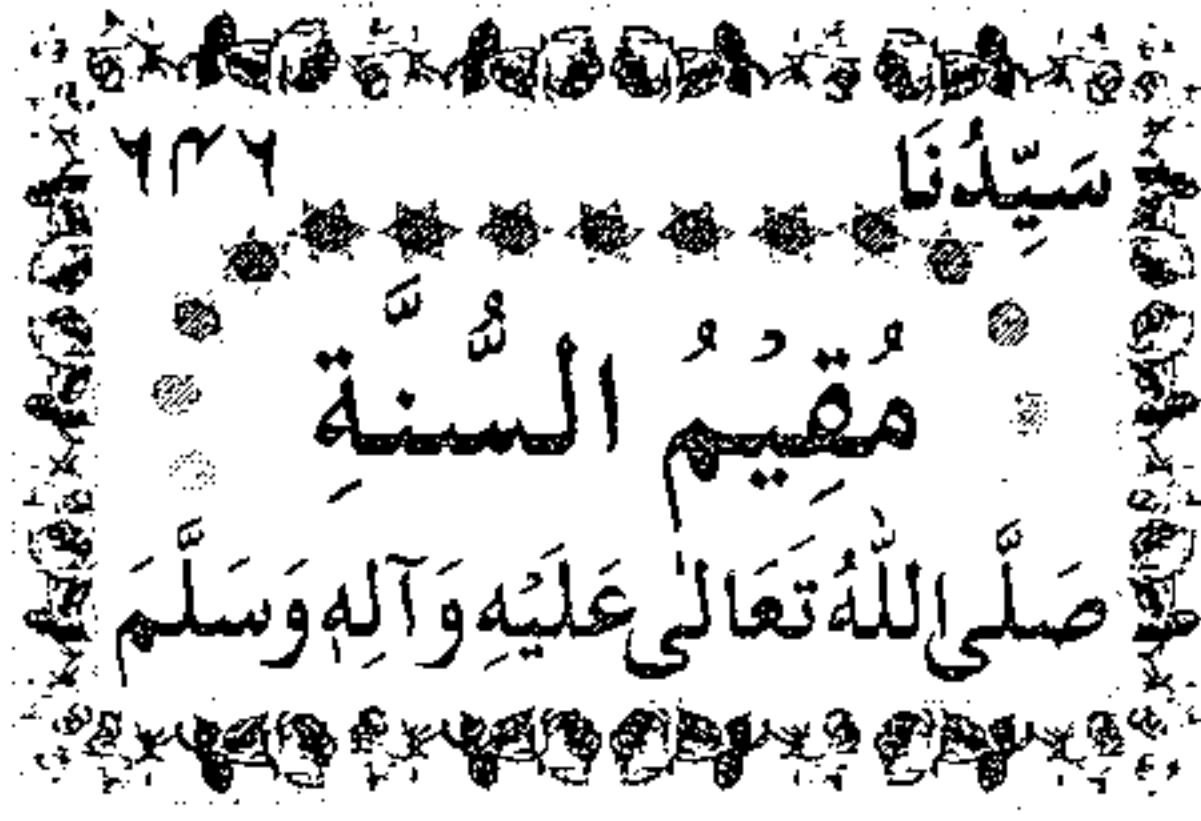 سَيِّدُنَا ۶۴۶
مُقِيْمُ السُّنَّةِ
صَلَّى اللّٰهُ تَعَالٰى عَلَيْهِ وَآلِهٖ وَسَلَّمَ